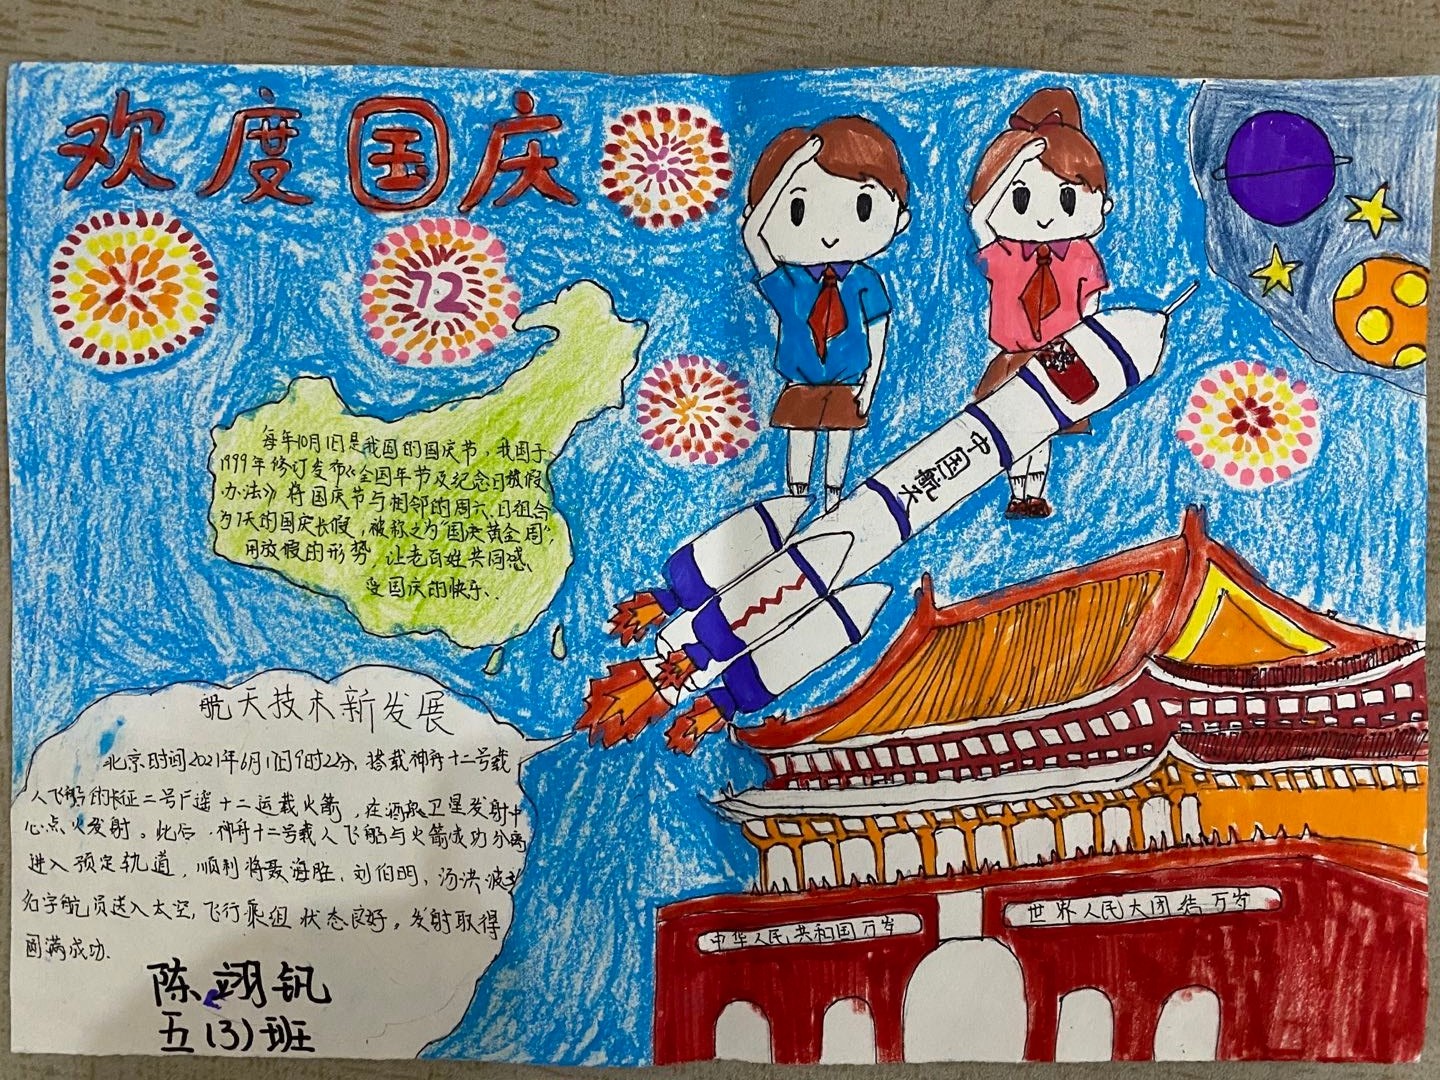 欢度国庆
72
每年10月1日是我国的国庆节，我国于
1999年修订发布《全国年节及纪念日放假
办法》将国庆节与相邻的周六、日组合
为7天的国庆长假，被称之为"国庆黄金周"，
用放假的形势，让老百姓共同感
受国庆的快乐.
中国航天
航天技术新发展
北京时间2021年6月17日9时22分，搭载神舟十二号载
人飞船的长征二号F遥十二运载火箭，在酒泉卫星发射中
心点火发射。此后，神舟十二号载人飞船与火箭成功分离
进入预定轨道，顺利将聂海胜、刘伯明、汤洪波3
名宇航员送入太空，飞行乘组状态良好，发射取得
圆满成功.
陈翊钒
五(3)班
中华人民共和国万岁
世界人民大团结万岁